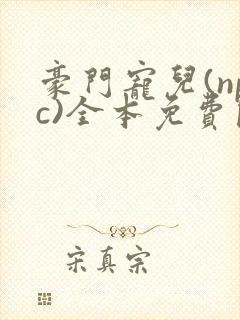 豪門寵兒(np
c)全本免費
宋真宗